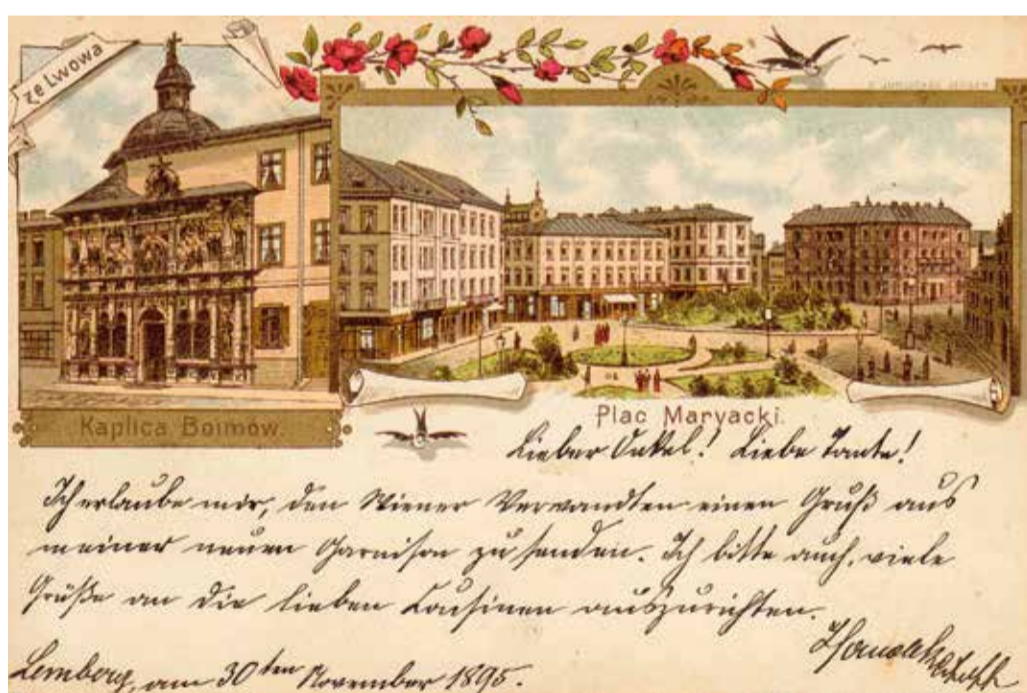 ze Lwowa
Kaplica Boimów.
Plac Maryacki.
Lieber Onkel! Liebe Tante!
Ich erlaube mir, den Wiener Verwandten einen Gruß aus
meiner neuen Garnison zu senden. Ich bitte auch, viele
Grüße an die lieben Cousinen auszurichten.
Lemberg, am 30ten November 1895.